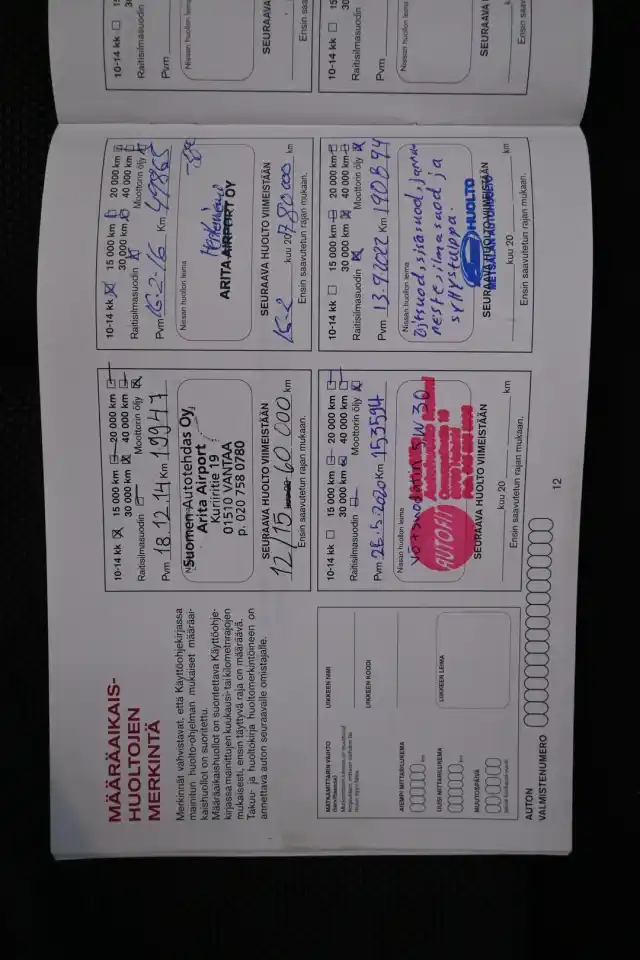 MÄÄRÄAIKAIS-
HUOLTOJEN
MERKINTÄ
Merkinnät vahvistavat, että Käyttöohjekirjassa
mainitun huolto-ohjelman mukaiset määräai-
kaishuollot on suoritettu.
Määräaikaishuollot on suoritettava Käyttöohje-
kirjassa mainittujen kuukausi- tai kilometrirajojen
mukaisesti, ensin täyttyvä raja on määräävä.
Takuu- ja huoltokirja huoltomerkintöineen on
annettava auton seuraavalle omistajalle.
MATKAMITTARIN VAIHTO
LIIKKEEN NIMI
LIIKKEEN KOODI
AIEMPI MITTARILUKEMA
km
UUSI MITTARILUKEMA
km
MUUTOSPÄIVÄ
LIIKKEEN LEIMA
AUTON
VALMISTENUMERO
12
10-14 kk 15 000 km 20 000 km
30 000 km 40 000 km
Raitisilmasuodin Moottorin öljy
Pvm 18.12.14 Km 19947
Suomen Autotehdas Oy
Arita Airport
Kuriiritie 19
01510 VANTAA
p. 020 758 0780
SEURAAVA HUOLTO VIIMEISTÄÄN
12/15 60 000 km
Ensin saavutetun rajan mukaan.
10-14 kk 15 000 km 20 000 km
30 000 km 40 000 km
Raitisilmasuodin Moottorin öljy
Pvm 16-2-16 Km 49865
Nissan huollon leima
ARITA AIRPORT OY
SEURAAVA HUOLTO VIIMEISTÄÄN
16-2 kuu 20 km
Ensin saavutetun rajan mukaan.
10-14 kk 15 000 km 20 000 km
30 000 km 40 000 km
Raitisilmasuodin Moottorin öljy
Pvm 26.5.2020 Km 153594
Nissan huollon leima
VÖ+suodatin 5W30
AUTOFIT
SEURAAVA HUOLTO VIIMEISTÄÄN
kuu 20 km
Ensin saavutetun rajan mukaan.
10-14 kk 15 000 km 20 000 km
30 000 km 40 000 km
Raitisilmasuodin Moottorin öljy
Pvm 13.9.2022 Km 190894
Nissan huollon leima
öljtsuod, sisäsuod, jarru
neste, ilmasuod ja
sytty.tulppa.
HUOLTO
SEURAAVA HUOLTO VIIMEISTÄÄN
kuu 20 km
Ensin saavutetun rajan mukaan.
10-14 kk
Raitisilmasuodin
Pvm
Nissan huollon leima
SEURAAVA
Ensin saa
10-14 kk
Raitisilmasuodin
Pvm
Nissan huollon leima
SEURAAVA
Ensin saa